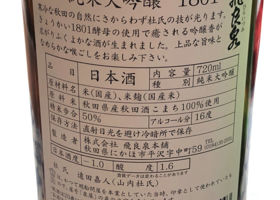 純米大吟醸 1801
飛良泉
寒冷な秋田の自然にさからわず杜氏の技が光ります。
きょうかい1801酵母の使用で癒される吟醸香が
広がりふくよかな酒が生まれました。上品な旨味と
なめらかな喉ごしをお楽しみ下さい。
品目 日本酒 内容量 720ml
原材料名 米(国産)、米麹(国産米) 純米大吟醸
原料米 秋田県産秋田酒こまち100%使用
精米歩合 50% アルコール分 16度
保存方法 直射日光を避け冷暗所で保存
製造者 株式会社 飛良泉本舗
秋田県にかほ市平沢字中町59
日本酒度 -1.0 酸度 1.6
杜氏 遠田嘉人(山内杜氏)